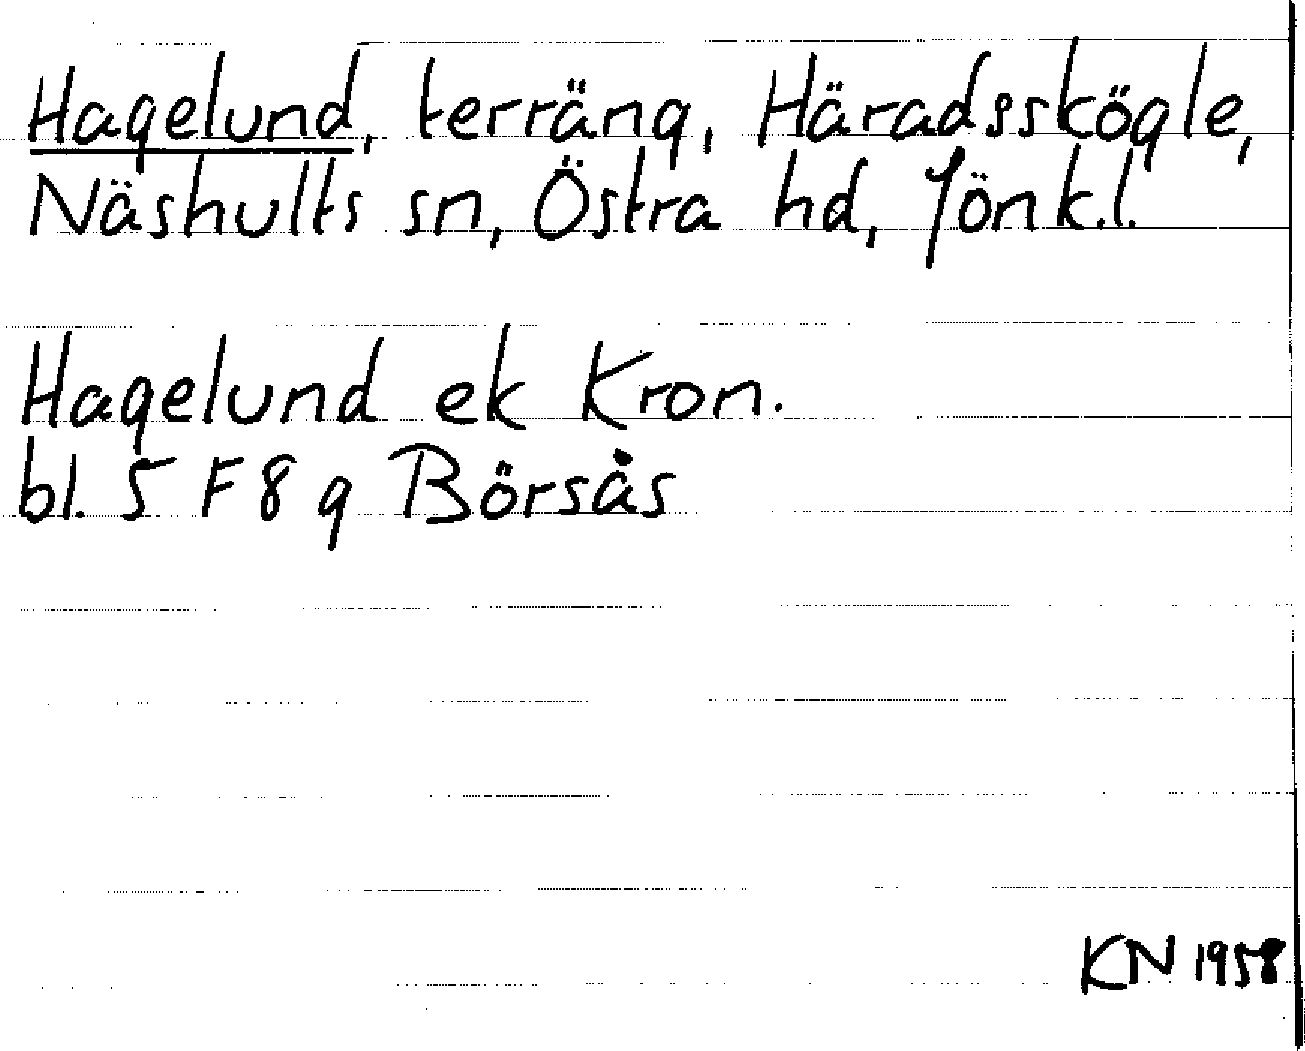 Hagelund, terräng, Häradsskögle,
Näshults sn, Östra hd, Jönk.l.
Hagelund ek Kron.
bl. 5 F 8 g Börsås
KN 1958